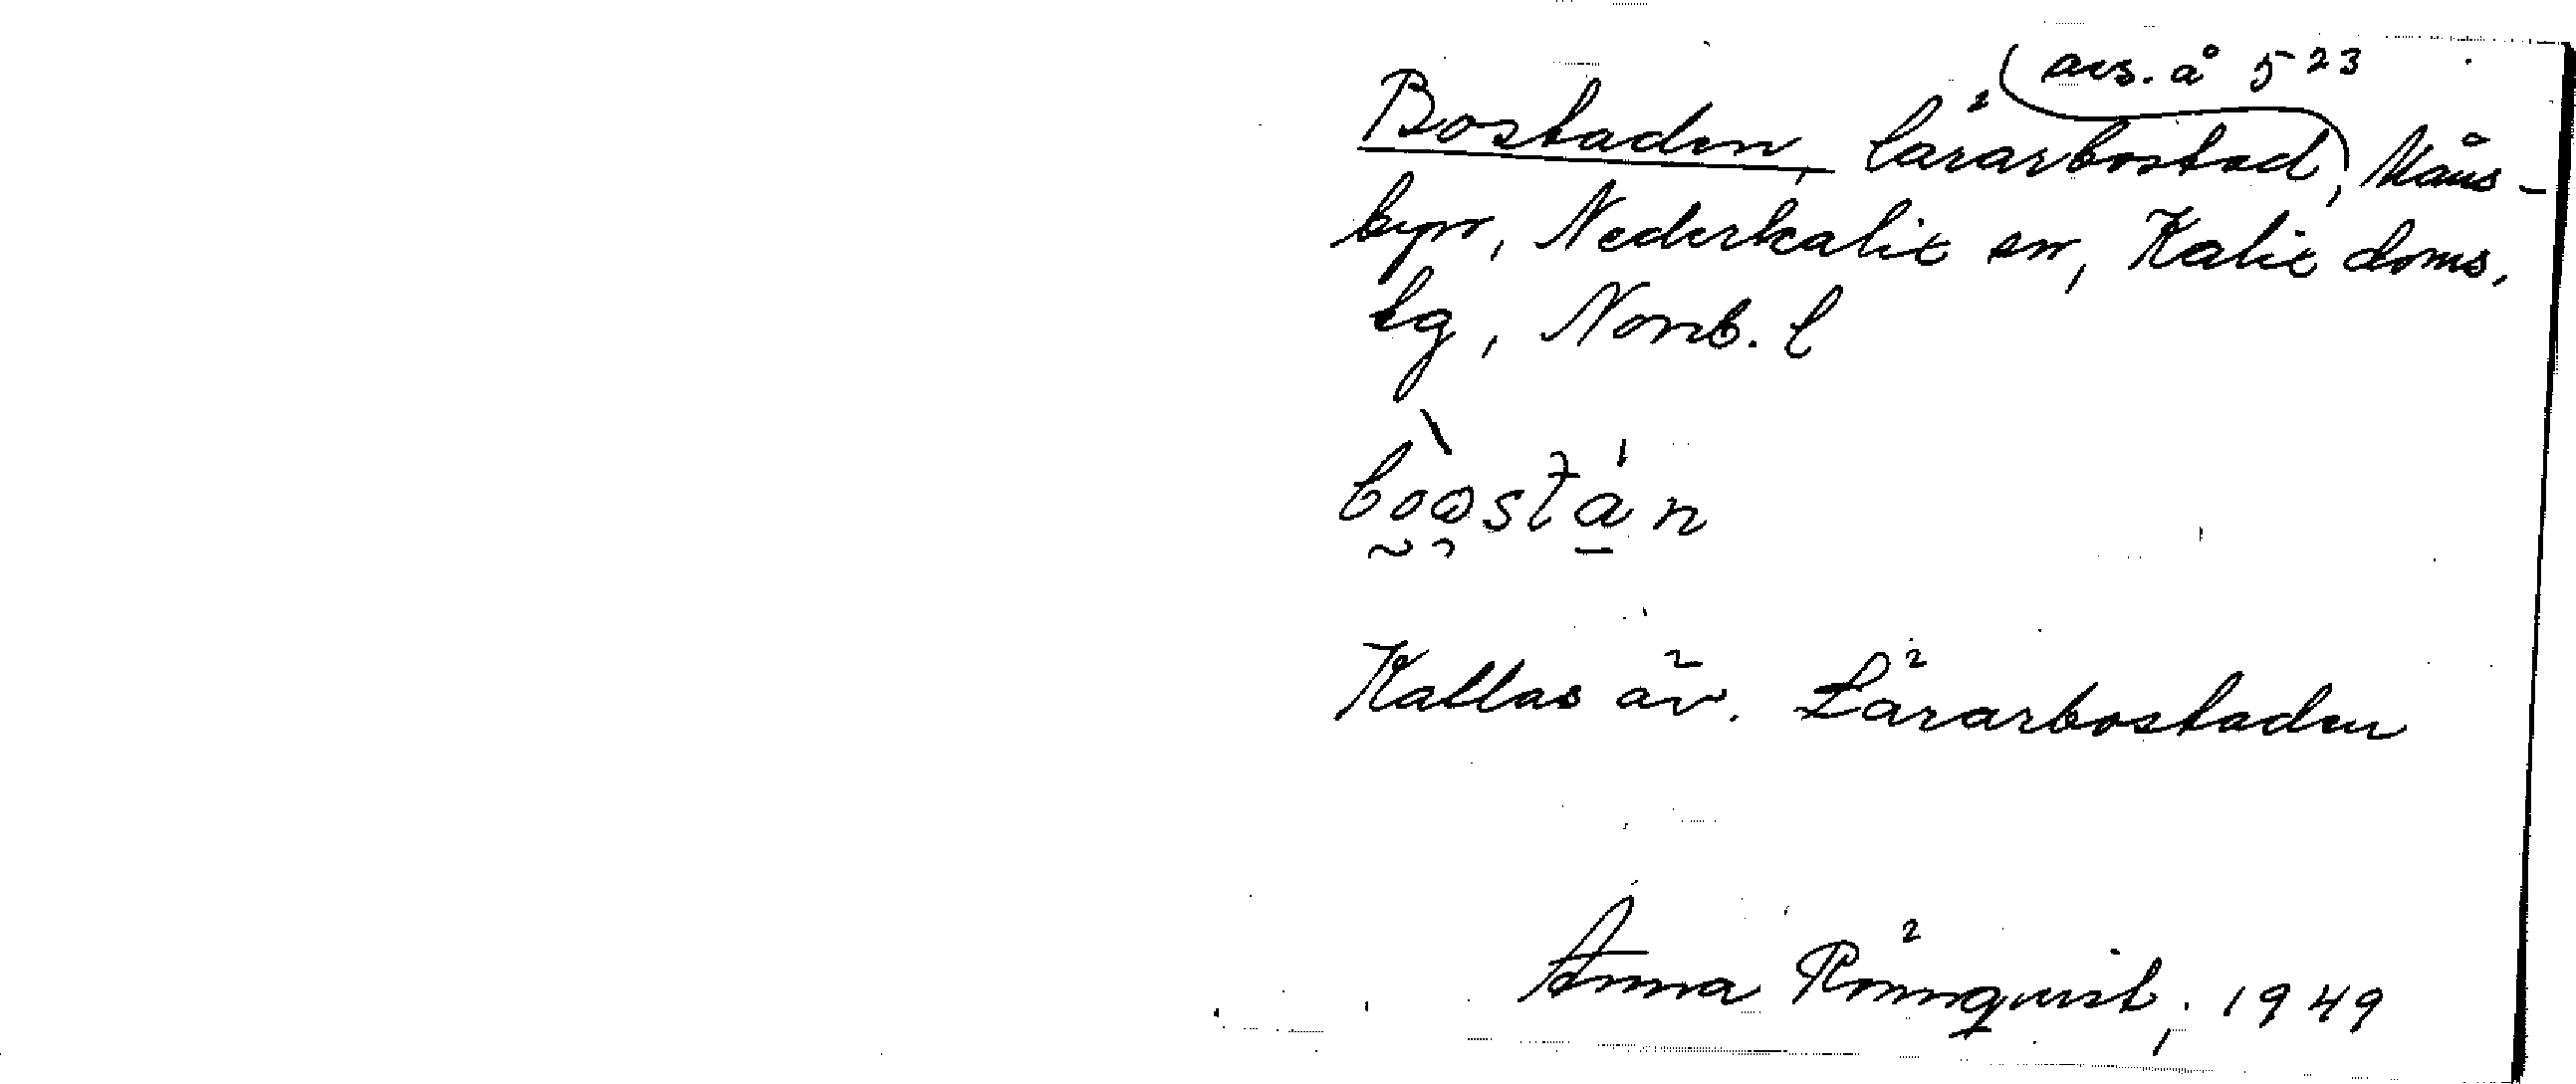 avs. å 523
Bostaden, lärarbostad, Måns-
byn, Nederkalix sn, Kalix doms.
tg, Norrb. l
Kallas äv. Lärarbostaden
Anna Rönnqvist, 1949